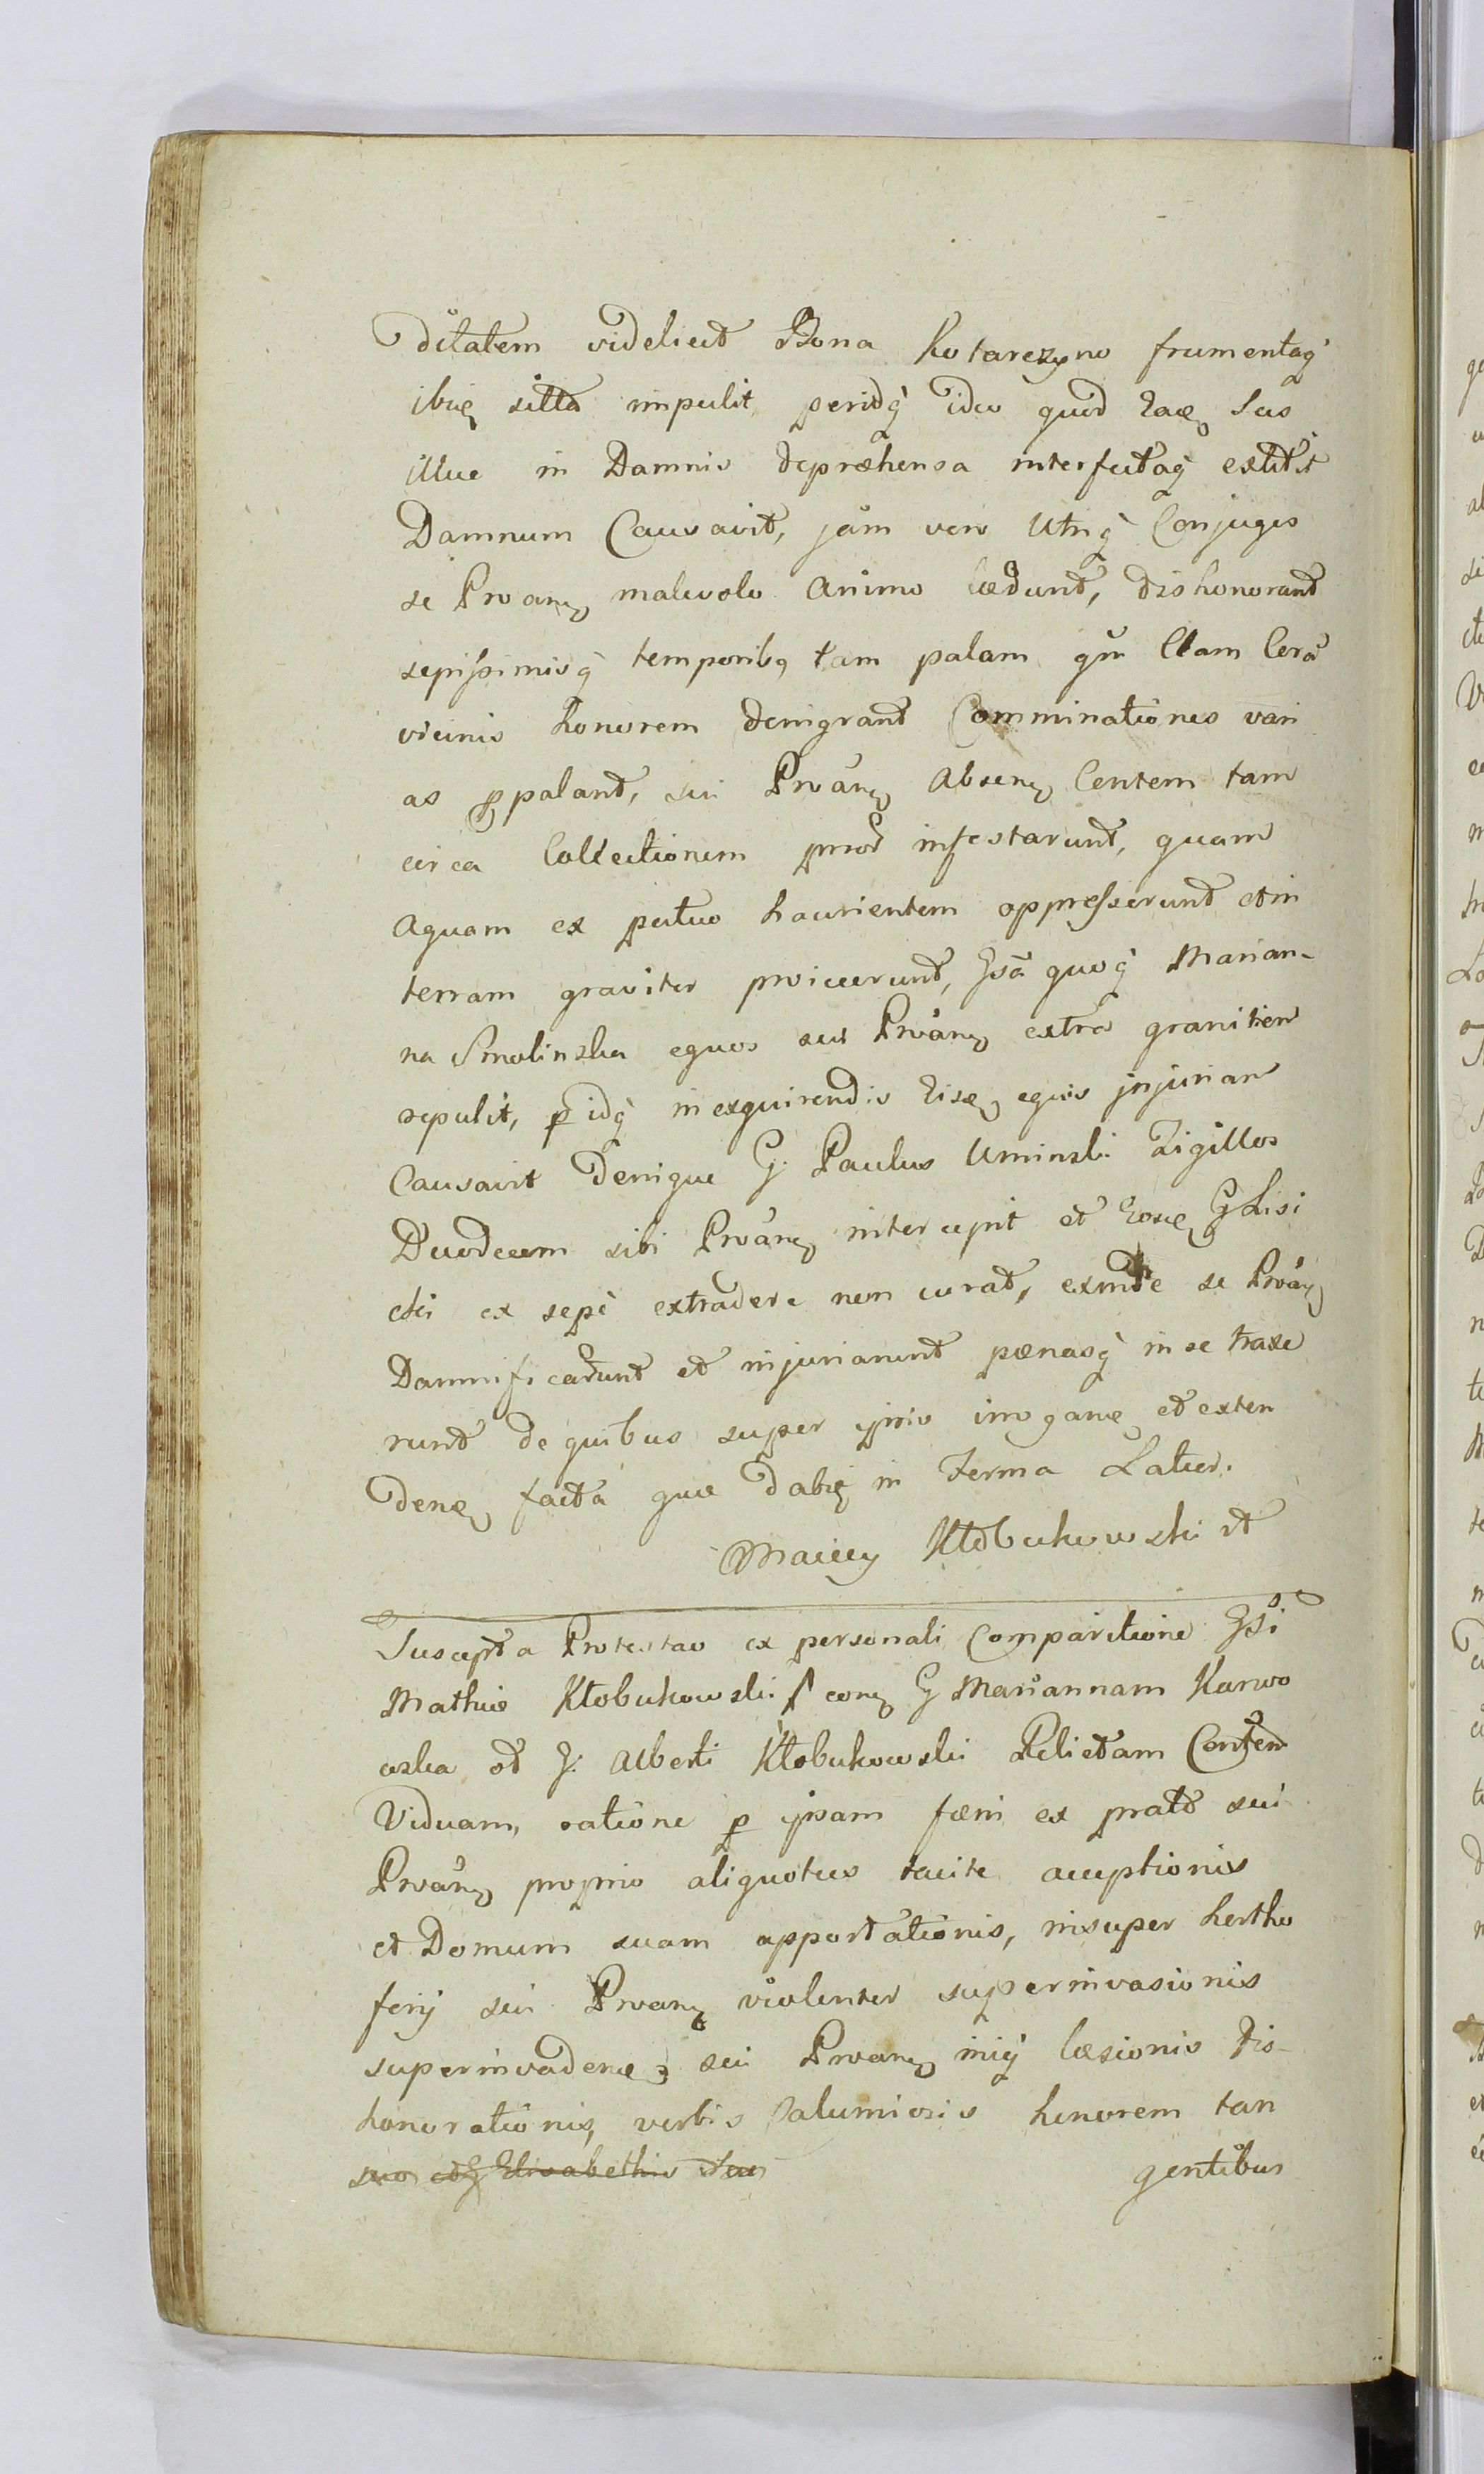 ditatem videlicet Bona Kotarczyno frumentaq́
ibiq sitta impulit, peridq́ ideo quod Eaq Sus
illue in Damnis depræhensa interfectaq́ extitit
Damnum Causavit, jam vero Utriq́ Conjuges
se Prvanq malevolo animo lædunt, dishonorant
sepissimisq́ temporibq tam palam qm Clam Corã
vicinis honorem denigrant Comminationes vari
as ppalant, sui Prvanq absenq Centem tam
circa Collectionem pmor infestarunt, quam
aquam ex puteo haurientem oppresserunt et in
terram graviter proicerunt, Gsã quoq́ Marian-
na Smolinska equos sui Prvanq extra granitien
repulit, p idq́ in exquirendis Eisq equis injuriam
Causavit Denique G. Paulus Uminski Tigillos
Duodecem sibi Prvanq intercepit et Eosq G Lisi
cki ex sepè extradere non curat, exinde se Prvanq
Damnificarunt et injuriarunt pænasq́ in se traxe
runt de quibus super ipsis irroganq et exten
denq facta que dabiq in Terma Latior.
Maciey Kłobukowski et
Suscepta Protestao ex personali Comparitione Gsi
Mathiæ Kłobukowski / conq G Mariannam Karwo
wska ol G. Alberti Kłobukowski Relictam Conten
Viduam, ratione p ipsam fæni ex prato sui
Prvanq proprio aliquoties tacite acceptionis
et Domum suam apportationis, insuper hortho
ferij sui Prvanq violenter superinvasionis
superinvadenq sui Prvanq iniq læsionis Dis-
honorationis, verbis Calumiosis honorem tan
gentibus